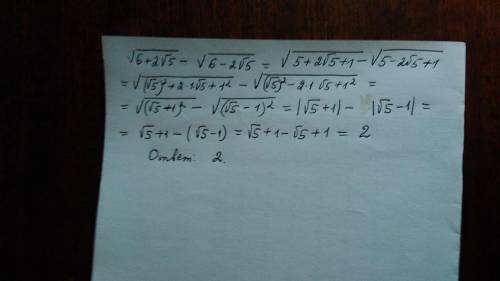 √(6+2√5) - √(6-2√5) = √(5+2√5+1) - √(5-2√5+1)
= √((√5)²+2·1√5+1²) - √((√5)²-2·1√5+1²) =
= √((√5+1)²) - √((√5-1)²) = |√5+1| - |√5-1| =
= √5+1-(√5-1) = √5+1-√5+1 = 2
Ответ 2.